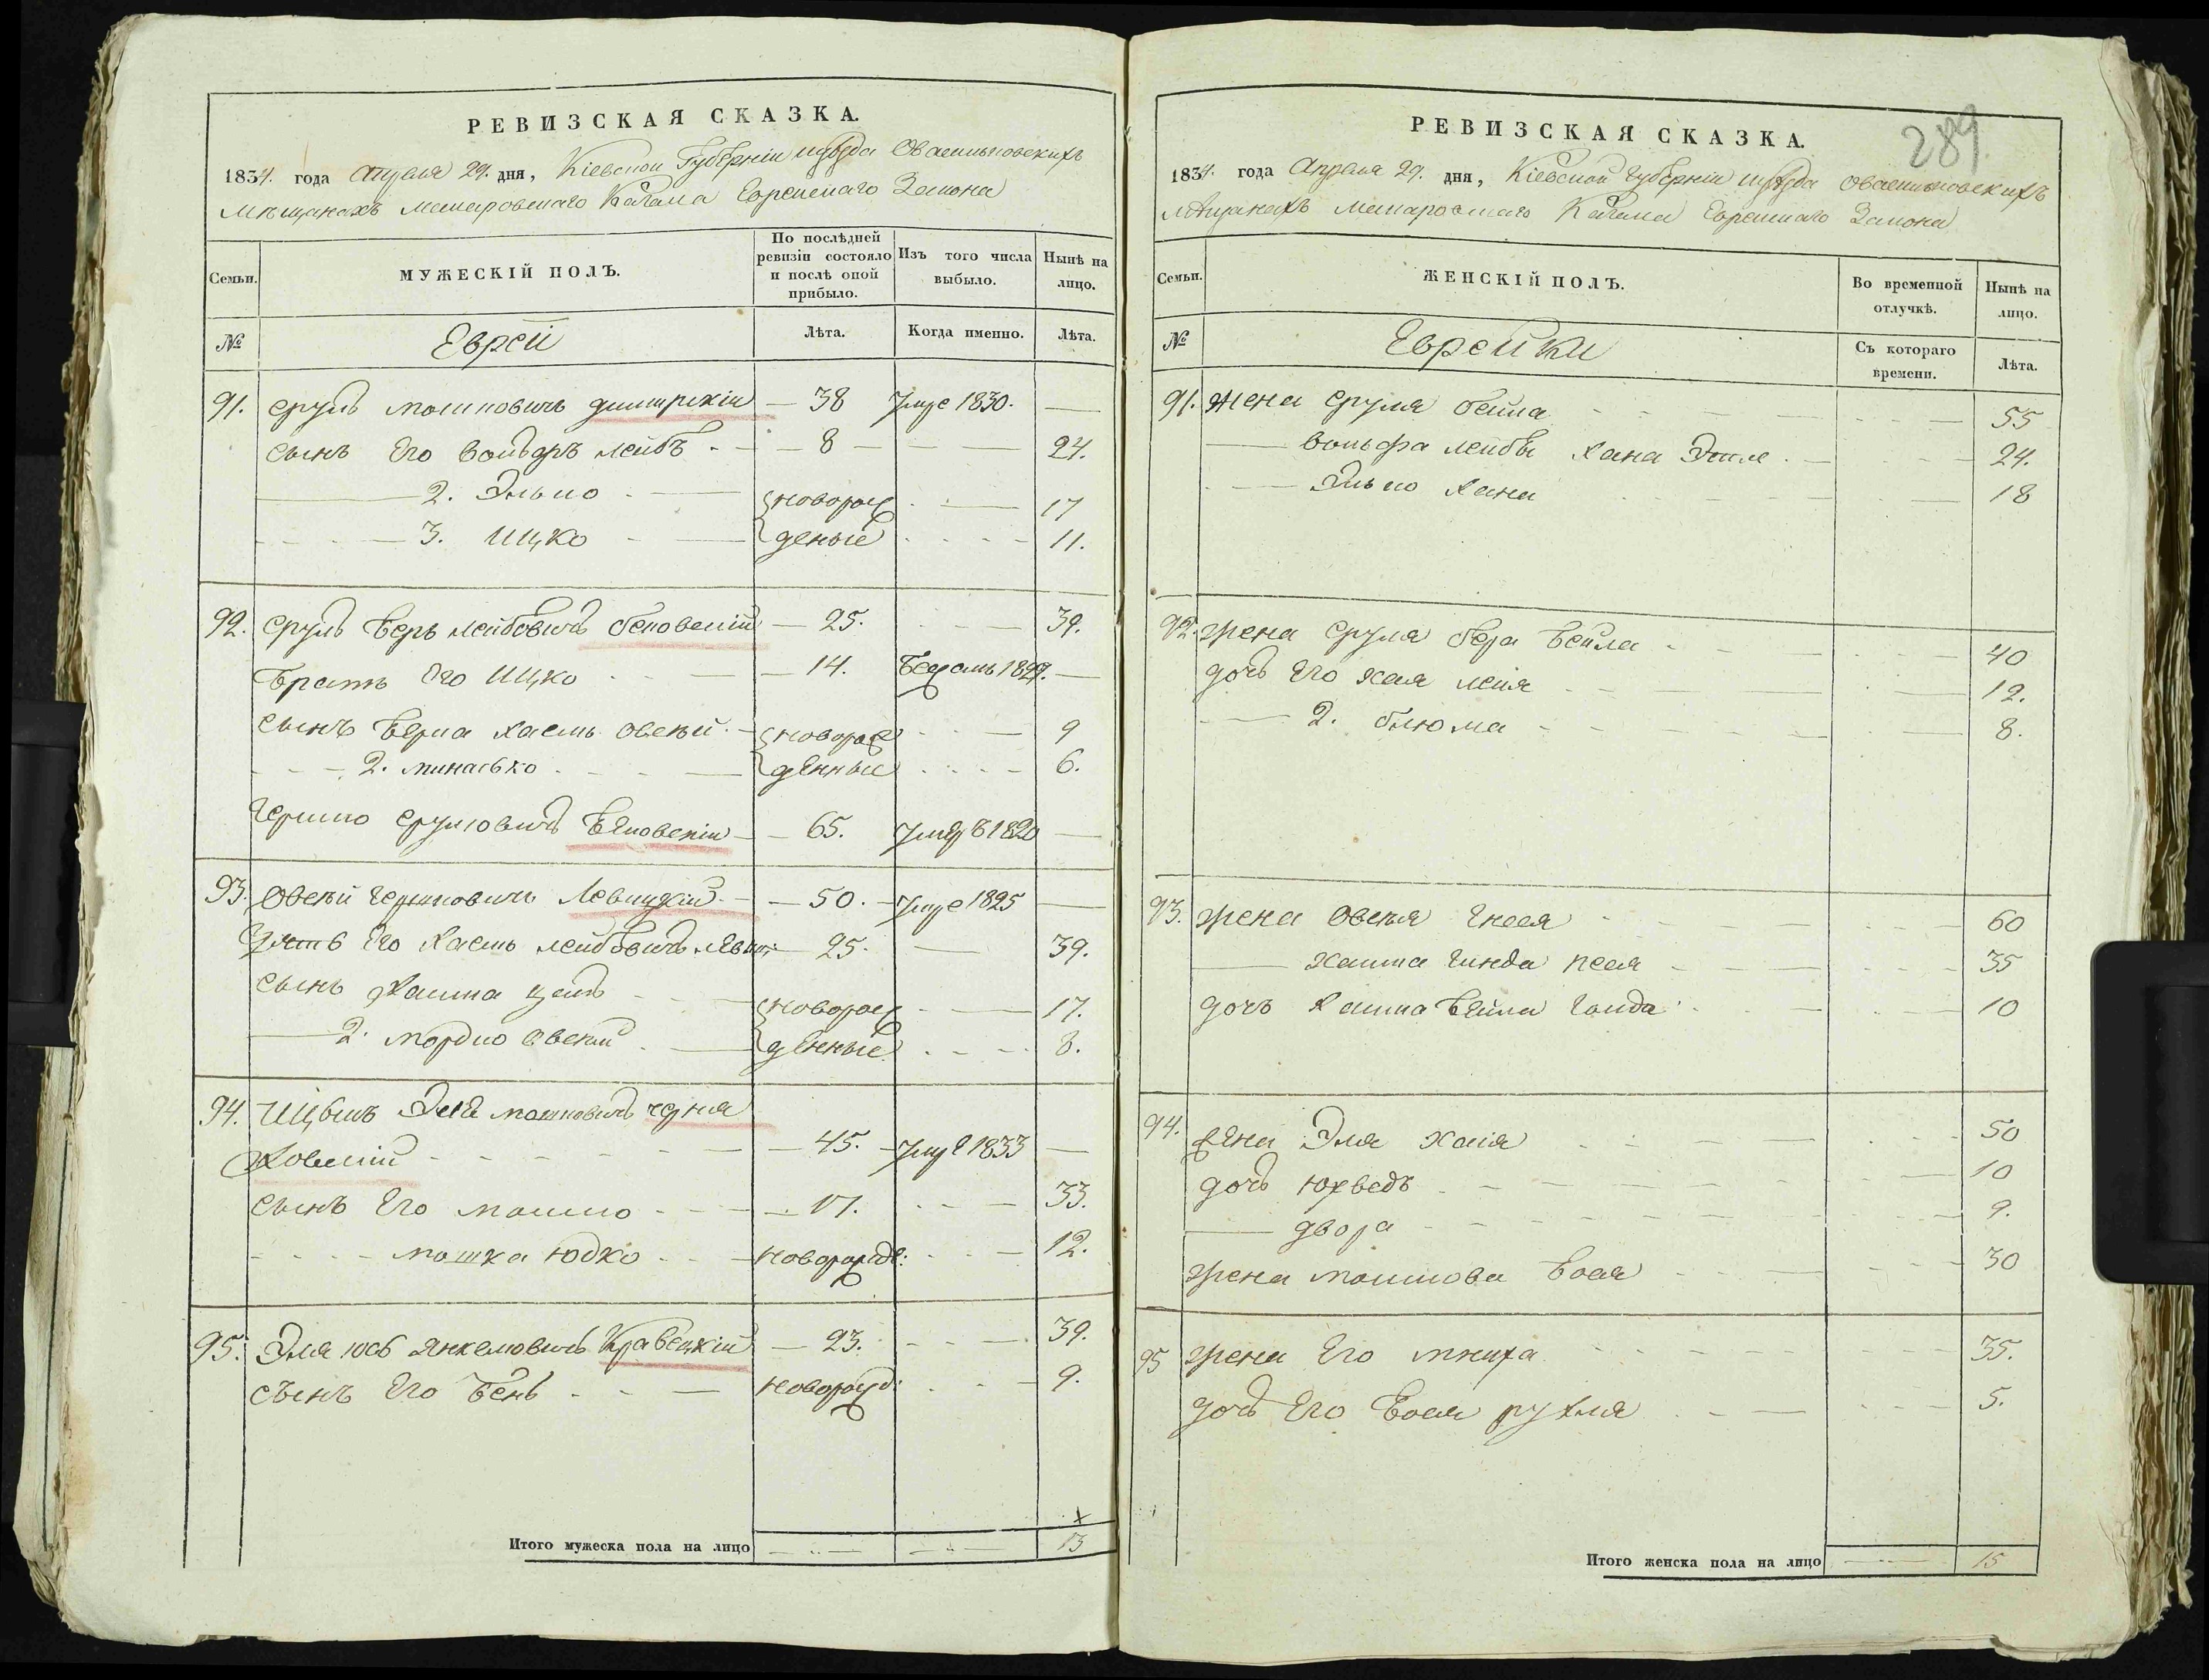 РЕВИЗСКАЯ СКАЗКА.
1834. года Апреля 29. дня, Кіевской Губерніи уѣзда
Мѣщанахъ Макаровскаго Кагала Еврейскаго Закона
Семьи.
МУЖЕСКІЙ ПОЛЪ.
По послѣдней ревизіи состояло и послѣ оной прибыло.
Изъ того числа выбыло.
Нынѣ на лицо.
№
Еврей
Лѣта.
Когда именно.
Лѣта.
91. Сруль Мошковичь — 38 Умре 1830. —
сынъ Его Вольфъ Лейбъ — 8 — 24.
2. Элько новорож 17
3. Ицко денные 11.
92. Сруль Беръ Лейбовичъ — 25. — 39.
Братъ Его Ицко — 14. 1827. —
сынъ Берка Хаемъ Овсей новорож 9
2. Минасько денные 6.
Гершко Сруловичъ — 65. Умеръ 1820 —
93. Овсей Гершковичь Левицкій — 50. Умре 1825 —
Зять Его Хаемъ Лейбовичъ — 25. — 39.
сынъ Хаима новорож 17.
2. Мордко Овсей денные 8.
94. Эля Мошковичъ Черня
ховскій — 45. Умре 1833 —
сынъ Его Мошко — 17. — 33.
Мошка Юдко новорожде: 12.
95. Эля Юсь Янкелювичъ Кравецкій — 23. — 39.
сынъ Его Бень новорожд: 9.
Итого мужеска пола на лицо 13
289
РЕВИЗСКАЯ СКАЗКА.
1834. года Апреля 29. дня, Кіевской Губерніи уѣзда
Мѣщанахъ Макаровскаго Кагала Еврейскаго Закона
Семьи.
ЖЕНСКІЙ ПОЛЪ.
Во временной отлучкѣ.
Нынѣ на лицо.
№
Еврейки
Съ котораго времени.
Лѣта.
91. Жена Сруля Бейла 55
— Вольфа Лейбы Хана 24.
— Элько Хана 18
92. жена Сруля Бера Бейла 40
дочь Его Хая Лея 12.
— 2. Блюма 8.
93. жена Овсея 60
— Хаима Гинда Песя 35
дочь Хаима Бейла Голда 10
94. жена Эля Хая 50
дочь Юхведъ 10
— Двора 9.
жена Мошкова Бася 30
95 жена Его Мниха 35.
дочь Его Бася Рухля 5.
Итого женска пола на лицо 15